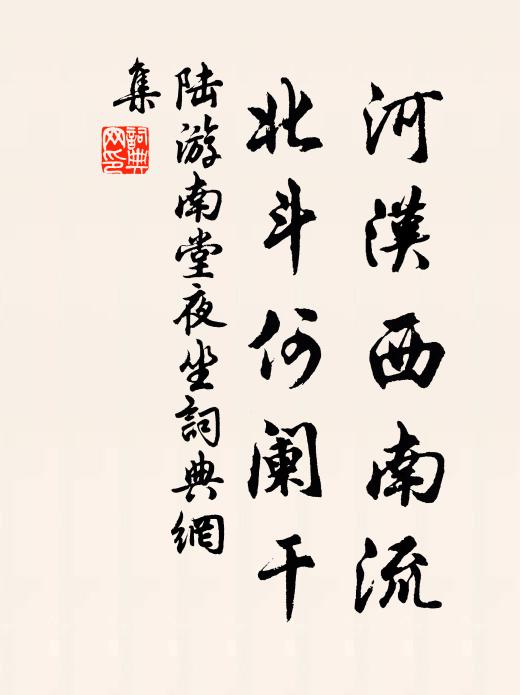 河漢西南流
北斗何阑干
陆游南堂夜坐詞典網
集
詞典网印